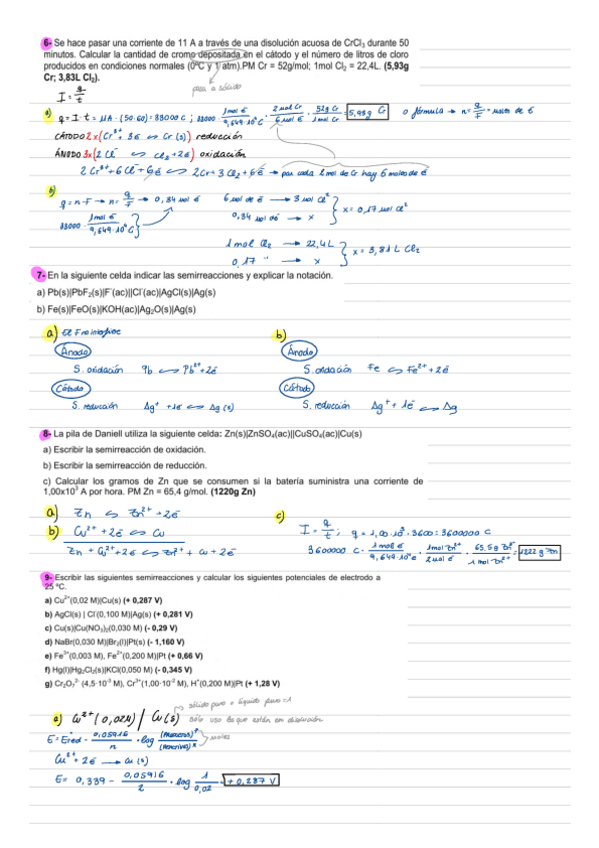 6- Se hace pasar una corriente de 11 A a través de una disolución acuosa de CrCl₃ durante 50
minutos. Calcular la cantidad de cromo depositada en el cátodo y el número de litros de cloro
producidos en condiciones normales (0ºC y 1 atm).PM Cr = 52g/mol; 1mol Cl₂ = 22,4L. (5,93g
Cr; 3,83L Cl₂).
pasa a sólido
I = q/t
a) q = I · t = 11A · (50·60) = 33000 C ; 33000 · 1mol é / 9,649·10⁴ C · 2 mol Cr / 6 mol é · 52g Cr / 1mol Cr = 5,93g Cr o fórmula → n = q/F = moles de é
CÁTODO 2x(Cr³⁺ + 3é ⇔ Cr (s)) reducción
ÁNODO 3x(2 Cl⁻ ⇔ Cl₂ + 2é) oxidación
2 Cr³⁺ + 6 Cl⁻ + 6é ⇔ 2Cr + 3 Cl₂ + 6é → por cada 2 mol de Cr hay 6 moles de é
b) q = n·F → n = q/F → 0,34 mol é
33000 · 1mol é / 9,649·10⁴ C
6 mol de é → 3 mol Cl²
0,34 mol é → x } x = 0,17 mol Cl²
1mol Cl₂ → 22,4L
0,17 " → x } x = 3,81 L Cl₂
7- En la siguiente celda indicar las semirreacciones y explicar la notación.
a) Pb(s)|PbF₂(s)|F⁻(ac)||Cl⁻(ac)|AgCl(s)|Ag(s)
b) Fe(s)|FeO(s)|KOH(ac)|Ag₂O(s)|Ag(s)
a) El F no interfiere
Ánodo
S. oxidación Pb ⇔ Pb²⁺ + 2é
Cátodo
S. reducción Ag⁺ + 1é ⇔ Ag (s)
b)
Ánodo
S. oxidación Fe ⇔ Fe²⁺ + 2é
Cátodo
S. reducción Ag⁺ + 1é ⇔ Ag
8- La pila de Daniell utiliza la siguiente celda: Zn(s)|ZnSO₄(ac)||CuSO₄(ac)|Cu(s)
a) Escribir la semirreacción de oxidación.
b) Escribir la semirreacción de reducción.
c) Calcular los gramos de Zn que se consumen si la batería suministra una corriente de
1,00x10³ A por hora. PM Zn = 65,4 g/mol. (1220g Zn)
a) Zn ⇔ Zn²⁺ + 2é
b) Cu²⁺ + 2é ⇔ Cu
Zn + Cu²⁺ + 2é ⇔ Zn²⁺ + Cu + 2é
c) I = q/t ; q = 1,00·10³ · 3600 = 3600000 C
3600000 C · 1 mol é / 9,649·10⁴ é · 1mol Zn²⁺ / 2 mol é · 65,5g Zn²⁺ / 1 mol Zn²⁺ = 1222 g Zn
9- Escribir las siguientes semirreacciones y calcular los siguientes potenciales de electrodo a
25 ºC.
a) Cu²⁺(0,02 M)|Cu(s) (+ 0,287 V)
b) AgCl(s) | Cl⁻(0,100 M)|Ag(s) (+ 0,281 V)
c) Cu(s)|Cu(NO₃)₂(0,030 M) (- 0,29 V)
d) NaBr(0,030 M)|Br₂(l)|Pt(s) (- 1,160 V)
e) Fe³⁺(0,003 M), Fe²⁺(0,200 M)|Pt (+ 0,66 V)
f) Hg(l)|Hg₂Cl₂(s)|KCl(0,050 M) (- 0,345 V)
g) Cr₂O₇²⁻ (4,5·10⁻³ M), Cr³⁺(1,00·10⁻² M), H⁺(0,200 M)|Pt (+ 1,28 V)
→ sólido puro o líquido puro = 1
a) Cu²⁺ (0,02M) / Cu (s) sólo uso los que están en disolución
E = Ered - 0,05916/n · log (Productos)ˣ/(Reactivos)ˣ moles
Cu²⁺ + 2é → Cu (s)
E = 0,339 - 0,05916/2 · log 1/0,02 = + 0,287 V